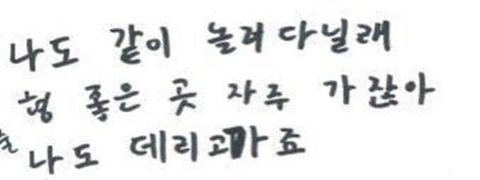 나도 같이 놀러 다닐래
형 좋은 곳 자루 가잖아
나도 데리고가죠